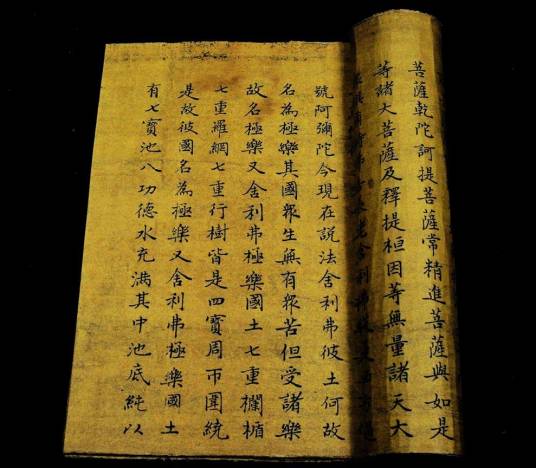 菩薩乾陀訶提菩薩常精進菩薩與如是
等諸大菩薩及釋提桓因等無量諸天大
舍利弗
號阿彌陀今現在説法舍利弗彼土何故
名為極樂其國眾生無有眾苦但受諸樂
故名極樂又舍利弗極樂國土七重欄楯
七重羅網七重行樹皆是四寶周帀圍繞
是故彼國名為極樂又舍利弗極樂國土
有七寶池八功德水充滿其中池底純以